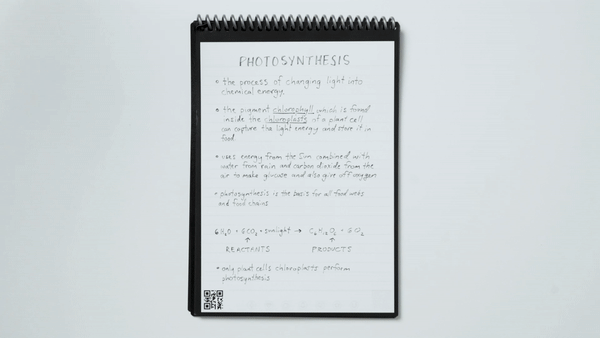 PHOTOSYNTHESIS
• the process of changing light into
chemical energy.
• the pigment chlorophyll (which is found
inside the chloroplasts of a plant cell
can capture the light energy and store it in
food.
• uses energy from the Sun combined with
water from rain and carbon dioxide from the
air to make glucose and also give off oxygen
• photosynthesis is the basis for all food webs
and food chains
6H₂O + 6CO₂ + sunlight → C₆H₁₂O₆ + 6O₂
↑ ↑
REACTANTS PRODUCTS
• only plant cells chloroplasts perform
photosynthesis